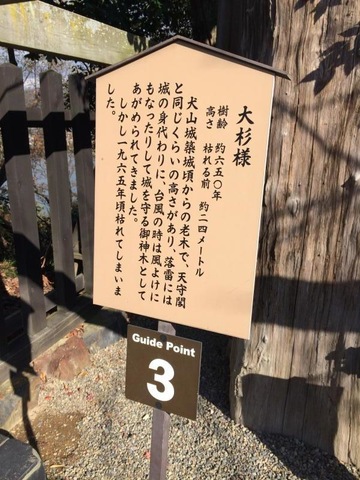 大杉様
樹齢 約六五〇年
高さ 枯れる前 約二四メートル
犬山城築城頃からの老木で、天守閣
と同じくらいの高さがあり、落雷には
城の身代わりに、台風の時は風よけに
もなったりして城を守る御神木として
あがめられてきました。
しかし一九六五年頃枯れてしまいま
した。
Guide Point
3